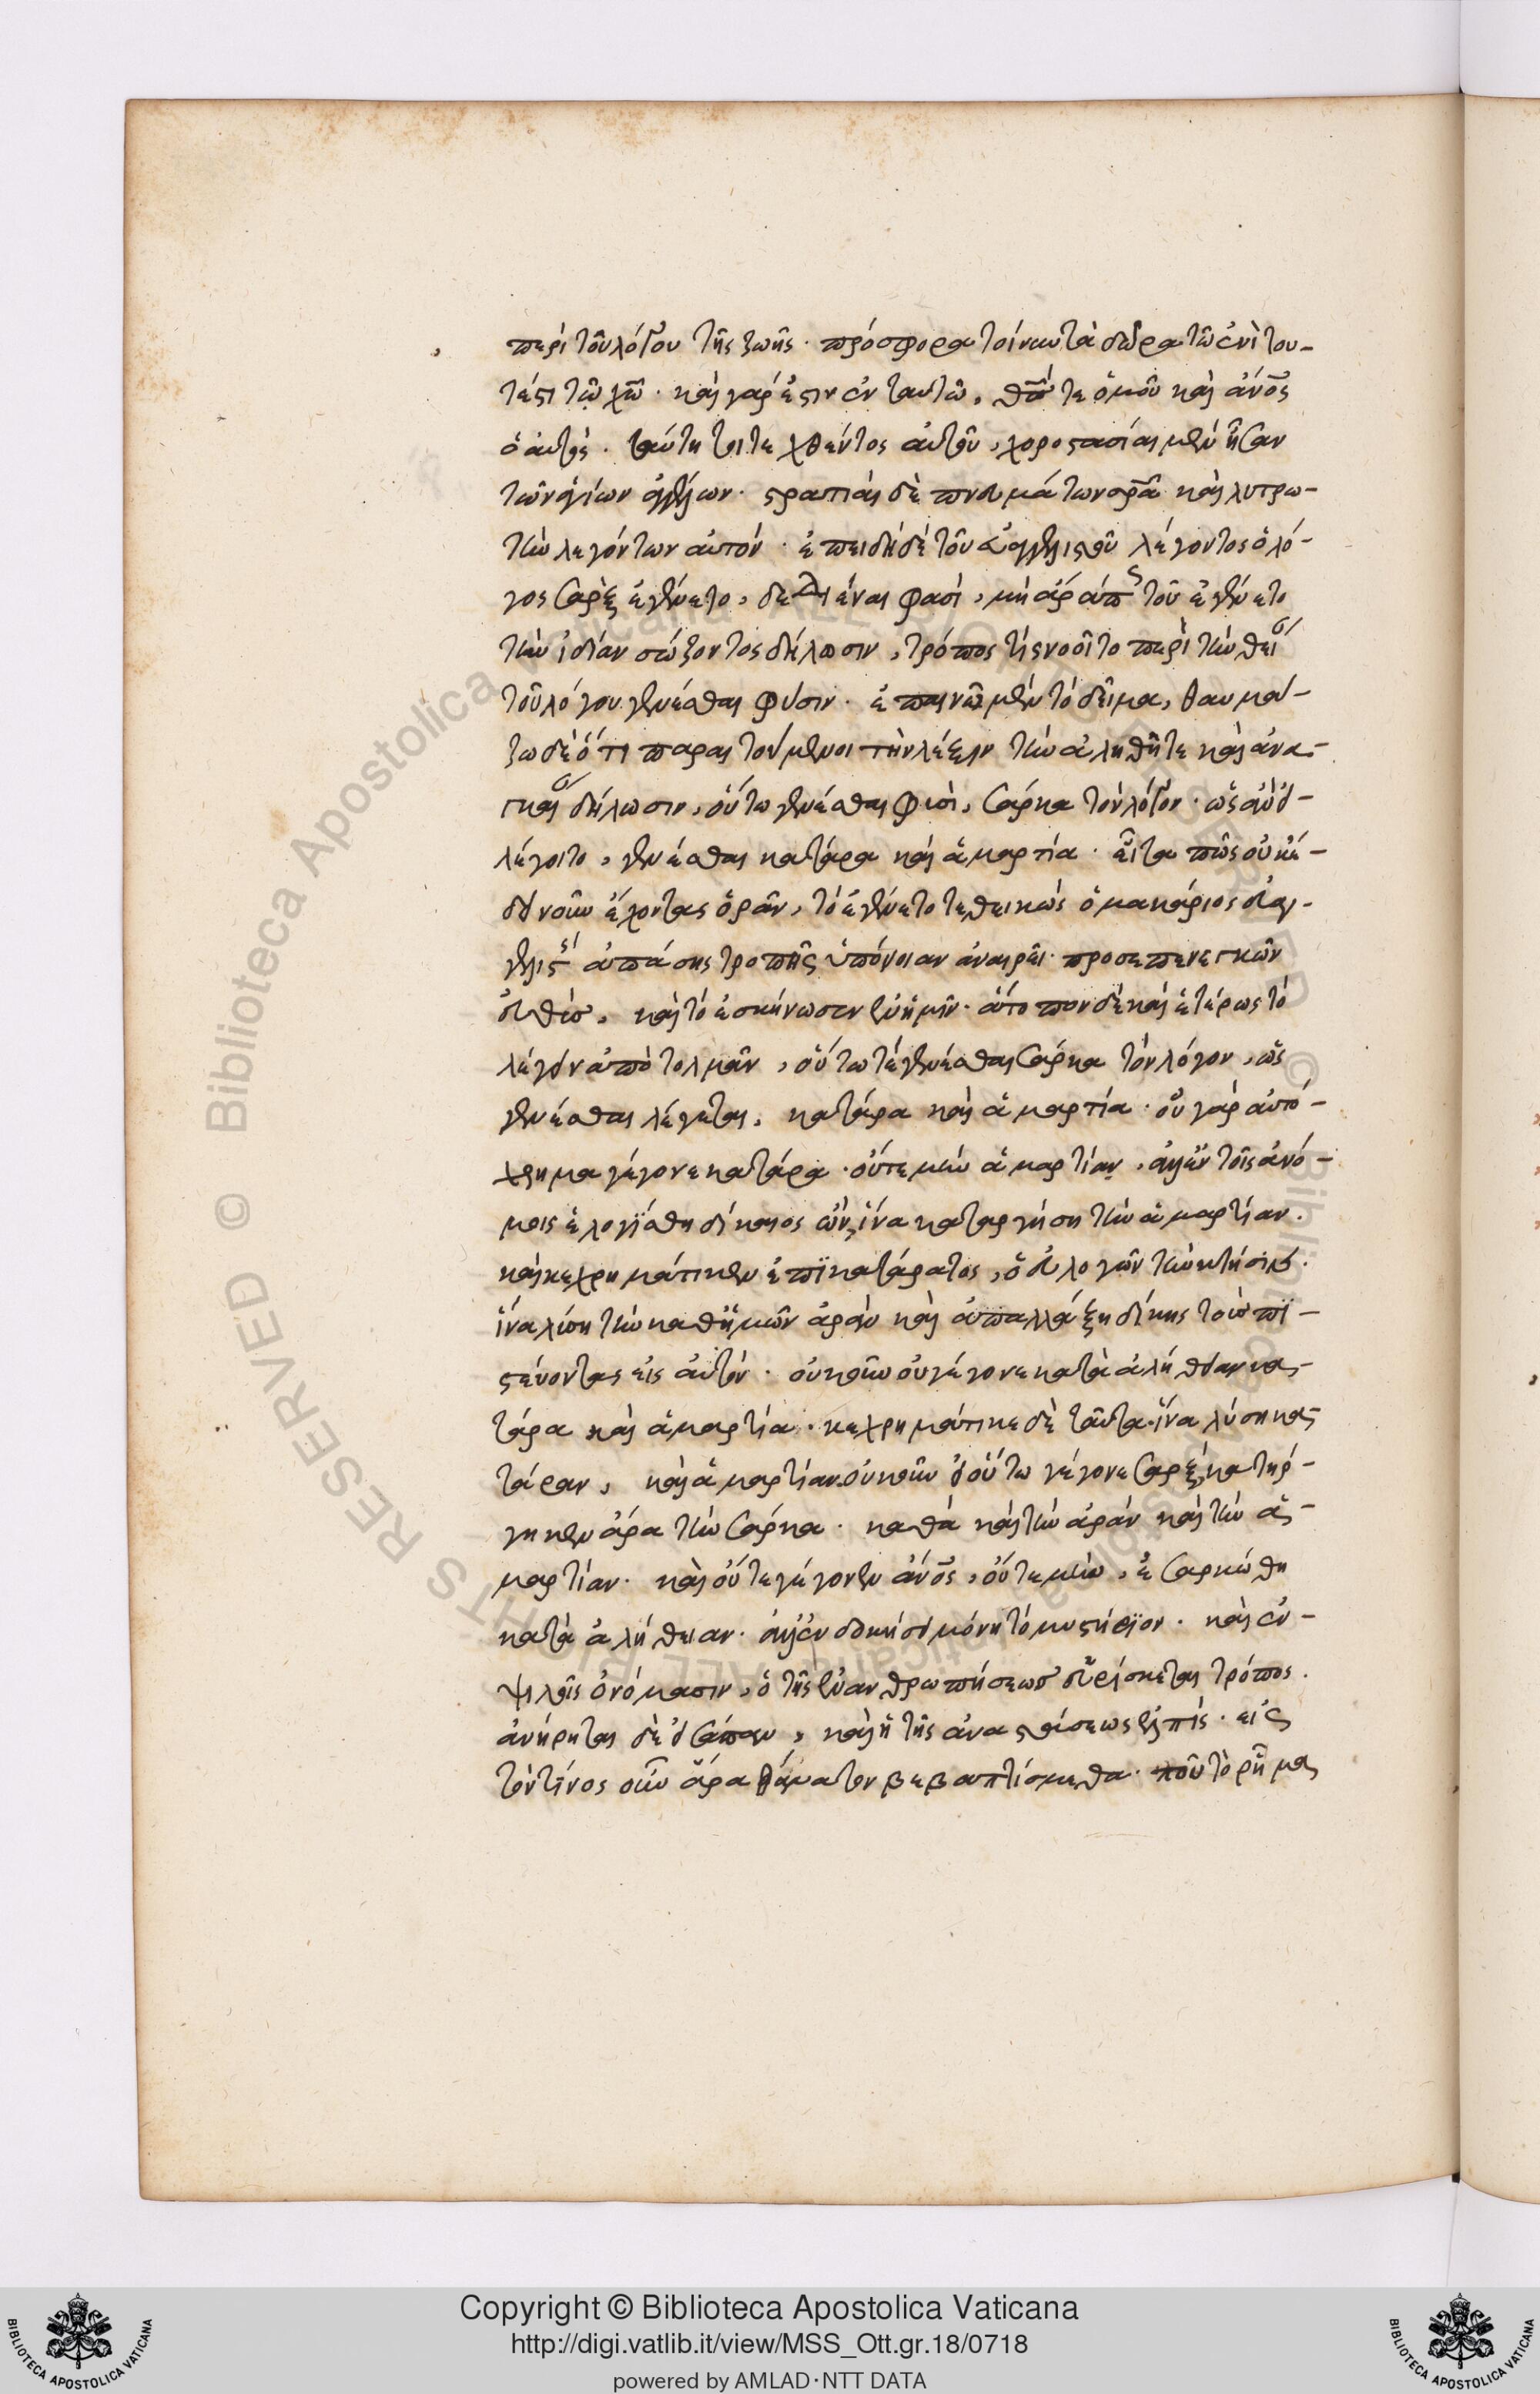 περὶ τοῦ λόγου τῆς ζωῆς. πρόσφορα τοίνυν τὰ δῶρα τῶ ἑνὶ του-
τέστι τῶ χῶ. καὶ γάρ ἐστιν ἐν ταυτῶ, θσ τε ὁμοῦ καὶ ἀνοσ
ὁ αὐτός. ταύτη τοι τεχθέντος αὐτοῦ, χοροστασίαι μὲν ἦσαν
τῶν ἁγίων ἀγγέλων. στρατιαὶ δὲ πνευμάτων σρα καὶ λυτρω-
τὴν λεγόντων αὐτόν. ἐπειδὴ δὲ τοῦ εὐαγγελιστοῦ λέγοντος ὁ λό-
γος σὰρξ ἐγένετο, δεδιέναι φασὶ, μὴ ἄρα πως τοῦ ἐγένετο
τὴν ἰδίαν σώζοντος δήλωσιν, τρόπος τὶς νοοῖτο περὶ τὴν θείαν
τοῦ λόγου γενέσθαι φύσιν. ἐπαινῶ μὲν τὸ δεῖμα, θαυμά-
ζω δὲ ὅτι παραιτούμενοι τὴν λέξιν τὴν ἀληθῆ τε καὶ ἀνα-
γκαίαν δήλωσιν, οὕτω γενέσθαι φησὶ, σάρκα τὸν λόγον. ὡς ἂν εἰ
λέγοιτο, γενέσθαι κατάρα καὶ ἁμαρτία. εἶτα πῶς οὐκ ἔ-
δει νοῦν ἔχοντας ὁρᾶν, τὸ ἐγένετο τεθεικὼς ὁ μακάριος εὐαγ-
γελιστὴς ἁπάσης τροπῆς ὑπόνοιαν ἀναιρεῖ. προσεπενεγκὼν
εὐθὺς, καὶ τὸ ἐσκήνωσεν ἐν ἡμῖν. ἄτοπον δὲ καὶ ἑτέρως τὸ
λέγειν ἀποτολμᾶν, οὕτω τὲ γενέσθαι σάρκα τὸν λόγον, ὡς
γενέσθαι λέγεται, κατάρα καὶ ἁμαρτία. οὐ γὰρ αὐτό-
χρημα γέγονε κατάρα. οὔτε μὴν ἁμαρτίαν, ἀλλ' ἐν τοῖς ἀνό-
μοις ἐλογίσθη δίκαιος ὢν, ἵνα καταργήση τὴν ἁμαρτίαν.
καὶ κεχρημάτικεν ἐπϊκατάρατος, ὁ εὐλογῶν τὴν κτίσιν.
ἵνα λύση τὴν καθ' ἡμῶν ἀρὰν καὶ ἀπαλλάξη δίκης τοὺς πϊ-
στεύοντας εἰς αὐτόν. οὐκοῦν οὐ γέγονε κατὰ ἀλήθειαν κα-
τάρα καὶ ἁμαρτία. κεχρημάτικε δὲ ταῦτα. ἵνα λύση κα-
τάραν, καὶ ἁμαρτίαν. οὐκοῦν εἰ οὕτω γέγονε σὰρξ, κατήρ-
γηκεν ἄρα τὴν σάρκα. καθὰ καὶ τὴν ἀρὰν καὶ τὴν ἁ-
μαρτίαν. καὶ οὔτε γέγονεν ἀνοσ, οὔτε μὴν, ἐσαρκώθη
κατὰ ἀλήθειαν. ἀλλ' ἐν δοκήσει μόνη τὸ μυστήριον. καὶ ἐν
ψιλοῖς ὀνόμασιν, ὁ τῆς ἐνανθρωπήσεως εὑρίσκεται τρόπος.
ἀνήρηται δὲ εἰσάπαν, καὶ ἡ τῆς ἀναστάσεως ἐλπὶς. εἰς
τὸν τίνος οὖν ἄρα θάνατον βεβαπτίσμεθα. ποῦ τὸ ρῆμα
Copyright © Biblioteca Apostolica Vaticana
http://digi.vatlib.it/view/MSS_Ott.gr.18/0718
powered by AMLAD·NTT DATA